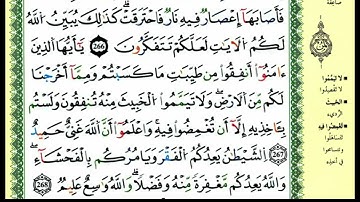 فَأَصَابَهَا إِعْصَارٌ فِيهِ نَارٌ فَاحْتَرَقَتْ ۗ كَذَٰلِكَ يُبَيِّنُ اللَّهُ
لَكُمُ الْآيَاتِ لَعَلَّكُمْ تَتَفَكَّرُونَ 266 يَا أَيُّهَا الَّذِينَ
آمَنُوا أَنفِقُوا مِن طَيِّبَاتِ مَا كَسَبْتُمْ وَمِمَّا أَخْرَجْنَا
لَكُم مِّنَ الْأَرْضِ ۖ وَلَا تَيَمَّمُوا الْخَبِيثَ مِنْهُ تُنفِقُونَ وَلَسْتُم
بِآخِذِيهِ إِلَّا أَن تُغْمِضُوا فِيهِ ۚ وَاعْلَمُوا أَنَّ اللَّهَ غَنِيٌّ حَمِيدٌ
267 الشَّيْطَانُ يَعِدُكُمُ الْفَقْرَ وَيَأْمُرُكُم بِالْفَحْشَاءِ ۖ
وَاللَّهُ يَعِدُكُم مَّغْفِرَةً مِّنْهُ وَفَضْلًا ۗ وَاللَّهُ وَاسِعٌ عَلِيمٌ 268
لا تيمموا
الخبيث
الرديء
تغمضوا فيه